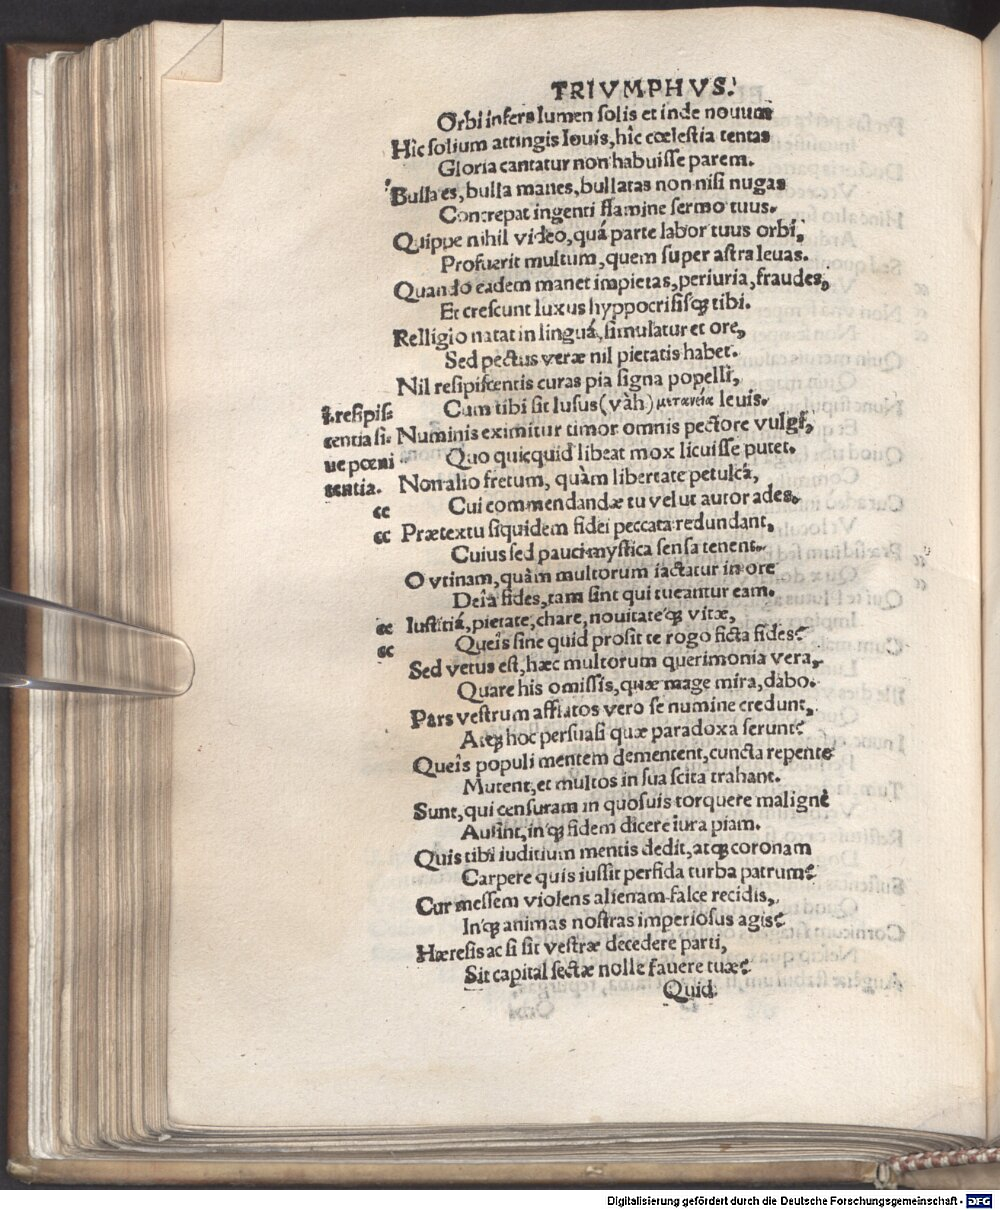 TRIVMPHVS.
Orbi infers lumen solis et inde nouum
Hîc solium attingis Iouis, hîc cœlestia tentas
Gloria cantatur non habuisse parem.
Bulla es, bulla manes, bullatas non nisi nugas
Concrepat ingenti flamine sermo tuus.
Quippe nihil video, quá parte labor tuus orbi,
Profuerit multum, quem super astra leuas.
Quando eadem manet impietas, periuria, fraudes,
Et crescunt luxus hyppocrisisq́; tibi.
Relligio natat in linguá, simulatur et ore,
Sed pectus veræ nil pietatis habet.
Nil resipiscentis curas pia signa popelli,
Cum tibi sit lusus (vàh) μετανεία leuis.
Numinis eximitur timor omnis pectore vulgi,
Quo quicquid libeat mox licuisse putet.
Non alio fretum, quàm libertate petulcá,
Cui commendandæ tu velut autor ades.
Prætextu siquidem fidei peccata redundant,
Cuius sed pauci mystica sensa tenent.
O vtinam, quàm multorum iactatur in ore
Deîa fides, tam sint qui tueantur eam.
Iustitiá, pietate, chare, nouitateq́; vitæ,
Queîs sine quid prosit te rogo ficta fides?
Sed vetus est, hæc multorum querimonia vera,
Quare his omissis, quæ mage mira, dabo.
Pars vestrum afflatos vero se numine credunt,
Atq; hoc persuasi quæ paradoxa serunt?
Queîs populi mentem dementent, cuncta repente
Mutent, et multos in sua scita trahant.
Sunt, qui censuram in quosuis torquere malignè
Ausint, inq́; fidem dicere iura piam.
Quis tibi iuditium mentis dedit, atq; coronam
Carpere quis iussit perfida turba patrum?
Cur messem violens alienam falce recidis,
Inq́; animas nostras imperiosus agis?
Hæresis ac si sit vestræ decedere parti,
Sit capital sectæ nolle fauere tuæ?
Quid
i. resipis:
centia si:
ue pœni
tentia.
“
“
“
“
Digitalisierung gefördert durch die Deutsche Forschungsgemeinschaft - DFG